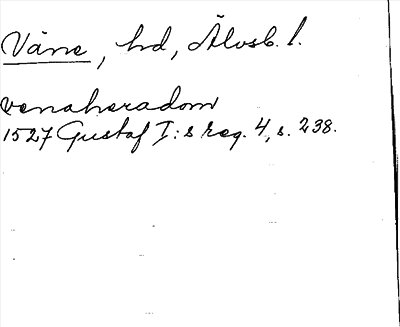 Väne, hd, Älvsb. l.
venaheradom
1527 Gustaf I:s reg. 4, s. 238.